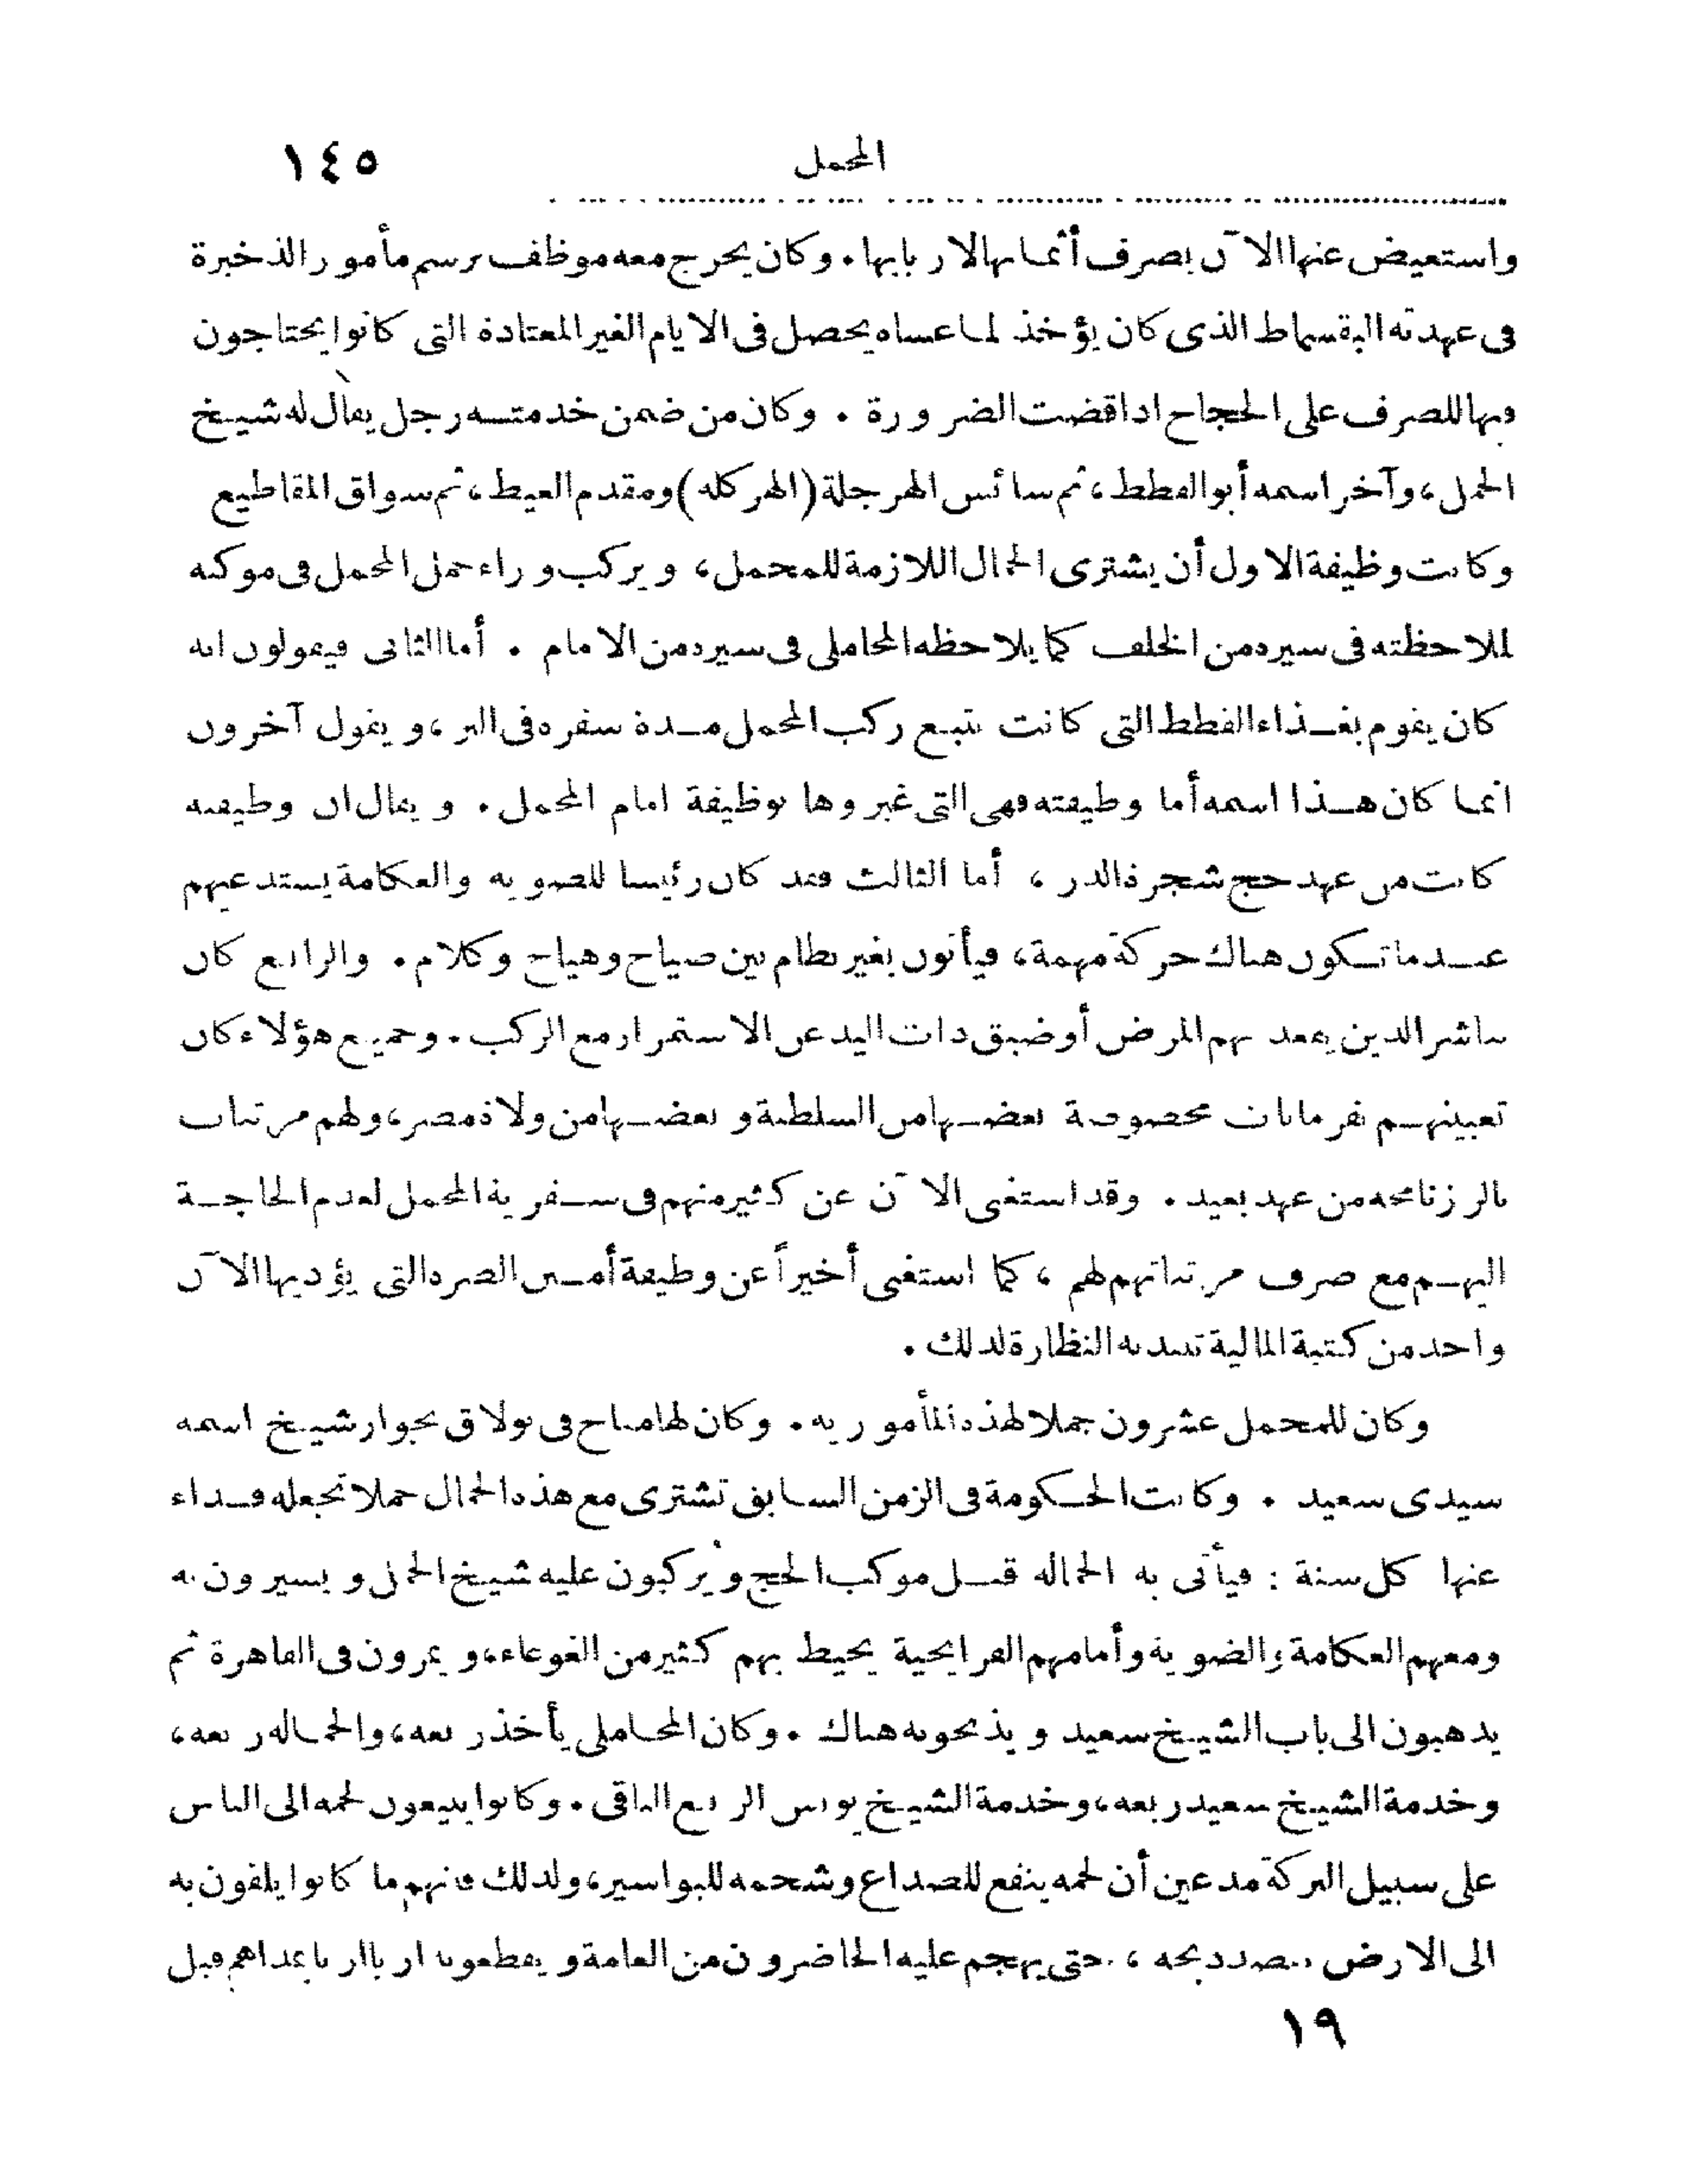 المحمل ١٤٥
واستعيض عنها الآن بصرف أثمانها لاربابها . وكان يخرج معه موظف برسم مأمور الذخيرة
فى عهدته البقسماط الذى كان يؤخذ لما عساه يحصل فى الايام الغير المعتادة التى كانوا يحتاجون
فيها للصرف على الحجاج اذا قضت الضرورة . وكان من ضمن خدمته رجل يقال له شيخ
الجمل ، وآخر اسمه أبو القطط ، ثم سائس الهرجلة (الهركله) ومقدم العيط ، ثم سواق المقاطيع
وكانت وظيفة الاول أن يشترى الجمال اللازمة للمحمل ، ويركب وراء جمل المحمل فى موكبه
لملاحظته فى سيره من الخلف كما يلاحظه المحاملى فى سيره من الامام . أما الثانى فيقولون انه
كان يقوم بغذاء القطط التى كانت تتبع ركب المحمل مدة سفره فى البر ، ويقول آخرون
انما كان هذا اسمه أما وظيفته فهى التى غيروها بوظيفة امام المحمل . ويقال ان وظيفته
كانت من عهد حج شجرة الدر ، أما الثالث فقد كان رئيسا للضويه والعكامة يستدعيهم
عندما تكون هناك حركة مهمة ، فيأتون بغير نظام بين صياح وهياج وكلام . والرابع كان
يباشر الذين يقعد بهم المرض أو ضيق ذات اليد عن الاستمرار مع الركب . وجميع هؤلاء كان
تعيينهم بفرمانات مخصوصة بعضها من السلطنة وبعضها من ولاة مصر ، ولهم مرتبات
بالرزنامجه من عهد بعيد . وقد استغنى الآن عن كثير منهم فى سفرية المحمل لعدم الحاجة
اليهم مع صرف مرتباتهم لهم ، كما استغنى أخيراً عن وظيفة أمين الصره التى يؤديها الآن
واحد من كتبة المالية تنتدبه النظارة لذلك .
وكان للمحمل عشرون جملا لهذه المأموريه . وكان لها مناخ فى بولاق بجوار شيخ اسمه
سيدى سعيد . وكانت الحكومة فى الزمن السابق تشترى مع هذه الجمال جملا تجعله فداء
عنها كل سنة : فيأتى به الجماله قبل موكب الحج ويُركبون عليه شيخ الجمل ويسيرون به
ومعهم العكامة والضويه وأمامهم القرايحية يحيط بهم كثير من الغوغاء ، ويمرون فى القاهرة ثم
يذهبون الى باب الشيخ سعيد ويذبحونه هناك . وكان المحاملى يأخذ ربعه ، والجماله ربعه ،
وخدمة الشيخ سعيد ربعه ، وخدمة الشيخ يونس الربع الباقى . وكانوا يبيعون لحمه الى الناس
على سبيل البركة مدعين أن لحمه ينفع للصداع وشحمه للبواسير ، ولذلك فانهم ما كانوا يلقون به
الى الارض بقصد ذبحه ، حتى يهجم عليه الحاضرون من العامة ويقطعونه اربا اربا بمداهم قبل
١٩